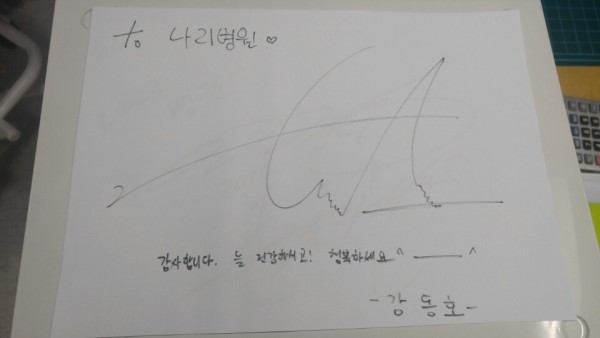 to 나리병원♡
감사합니다. 늘 건강하시고! 행복하세요^ ——— ^
- 강동호 -